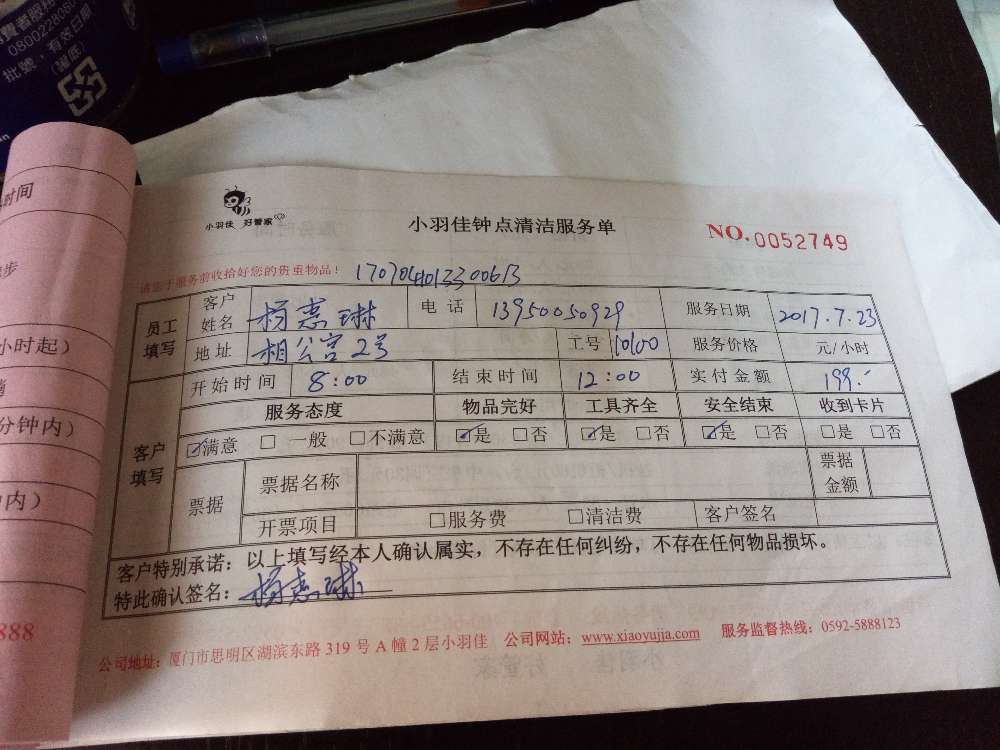 0800228060
批號，有效日期
小羽佳 好管家
小羽佳钟点清洁服务单
NO.0052749
请您于服务前收拾好您的贵重物品！
员工填写 客户姓名 杨惠琳 电话 13950050929 服务日期 2017.7.23
地址 相公宫2号 工号 10100 服务价格 元/小时
客户填写 开始时间 8:00 结束时间 12:00 实付金额 199.-
服务态度 物品完好 工具齐全 安全结束 收到卡片
☑满意 □一般 □不满意 ☑是 □否 ☑是 □否 ☑是 □否 □是 □否
票据 票据名称 票据金额
开票项目 □服务费 □清洁费 客户签名
客户特别承诺：以上填写经本人确认属实，不存在任何纠纷，不存在任何物品损坏。
特此确认签名：杨惠琳
公司地址：厦门市思明区湖滨东路319号A幢2层小羽佳 公司网站：www.xiaoyujia.com 服务监督热线：0592-5888123
时间
步
小时起）
分钟内）
内）
888